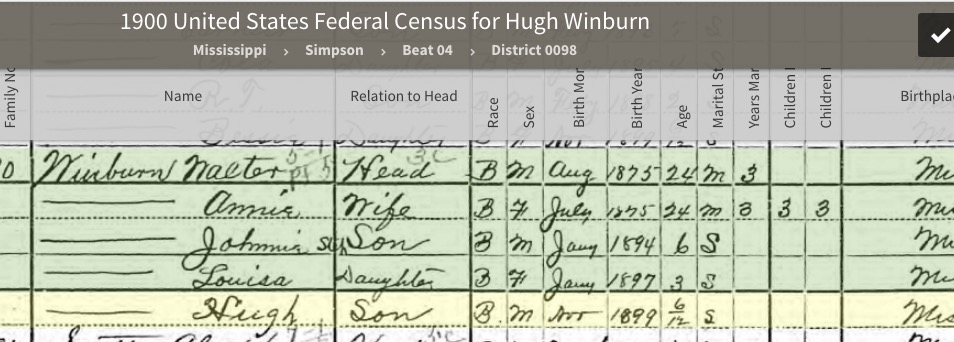 1900 United States Federal Census for Hugh Winburn
Mississippi > Simpson > Beat 04 > District 0098
Family No Name Relation to Head Race Sex Birth Mon Birth Year Age Marital St Years Mar Children I Children I Birthplac
R. T.
Bessie Daughter B 1899
0 Winburn Walter Head B M Aug 1875 24 M 3
Annie Wife B F July 1875 24 M 3 3 3
Johnnie Son B M Jany 1894 6 S
Louisa Daughter B F Jany 1897 3 S
Hugh Son B. M Nov 1899 6/12 S Mis